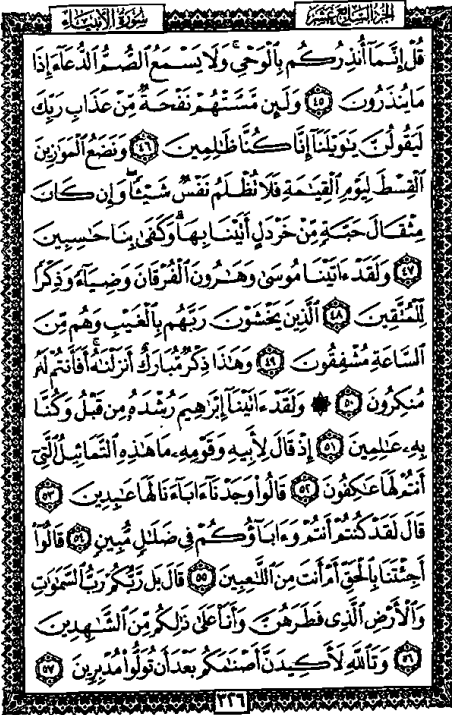 سُورَةُ الأَنبِيَاء
الجزء السابع عشر
قُلْ إِنَّمَآ أُنذِرُكُم بِٱلْوَحْىِ ۚ وَلَا يَسْمَعُ ٱلصُّمُّ ٱلدُّعَآءَ إِذَا
مَا يُنذَرُونَ ٤٥ وَلَئِن مَّسَّتْهُمْ نَفْحَةٌ مِّنْ عَذَابِ رَبِّكَ
لَيَقُولُنَّ يَٰوَيْلَنَآ إِنَّا كُنَّا ظَٰلِمِينَ ٤٦ وَنَضَعُ ٱلْمَوَٰزِينَ
ٱلْقِسْطَ لِيَوْمِ ٱلْقِيَٰمَةِ فَلَا تُظْلَمُ نَفْسٌ شَيْـًٔا ۖ وَإِن كَانَ
مِثْقَالَ حَبَّةٍ مِّنْ خَرْدَلٍ أَتَيْنَا بِهَا ۗ وَكَفَىٰ بِنَا حَٰسِبِينَ
٤٧ وَلَقَدْ ءَاتَيْنَا مُوسَىٰ وَهَٰرُونَ ٱلْفُرْقَانَ وَضِيَآءً وَذِكْرًا
لِّلْمُتَّقِينَ ٤٨ ٱلَّذِينَ يَخْشَوْنَ رَبَّهُم بِٱلْغَيْبِ وَهُم مِّنَ
ٱلسَّاعَةِ مُشْفِقُونَ ٤٩ وَهَٰذَا ذِكْرٌ مُّبَارَكٌ أَنزَلْنَٰهُ ۚ أَفَأَنتُمْ لَهُۥ
مُنكِرُونَ ٥٠ ۞ وَلَقَدْ ءَاتَيْنَآ إِبْرَٰهِيمَ رُشْدَهُۥ مِن قَبْلُ وَكُنَّا
بِهِۦ عَٰلِمِينَ ٥١ إِذْ قَالَ لِأَبِيهِ وَقَوْمِهِۦ مَا هَٰذِهِ ٱلتَّمَاثِيلُ ٱلَّتِىٓ
أَنتُمْ لَهَا عَٰكِفُونَ ٥٢ قَالُوا۟ وَجَدْنَآ ءَابَآءَنَا لَهَا عَٰبِدِينَ ٥٣
قَالَ لَقَدْ كُنتُمْ أَنتُمْ وَءَابَآؤُكُمْ فِى ضَلَٰلٍ مُّبِينٍ ٥٤ قَالُوٓا۟
أَجِئْتَنَا بِٱلْحَقِّ أَمْ أَنتَ مِنَ ٱللَّٰعِبِينَ ٥٥ قَالَ بَل رَّبُّكُمْ رَبُّ ٱلسَّمَٰوَٰتِ
وَٱلْأَرْضِ ٱلَّذِى فَطَرَهُنَّ وَأَنَا۠ عَلَىٰ ذَٰلِكُم مِّنَ ٱلشَّٰهِدِينَ
٥٦ وَتَٱللَّهِ لَأَكِيدَنَّ أَصْنَٰمَكُم بَعْدَ أَن تُوَلُّوا۟ مُدْبِرِينَ ٥٧
٣٢٦